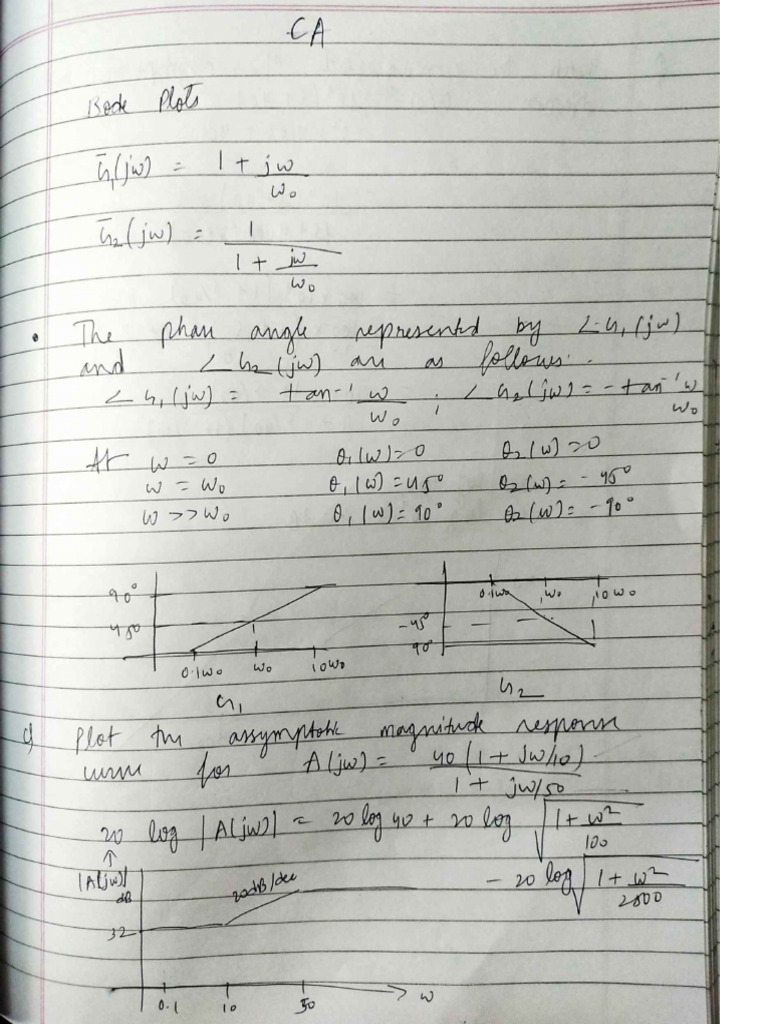 CA
Bode Plots
G₁(jω) = 1 + jω/ω₀
G₂(jω) = 1/(1 + jω/ω₀)
• The phase angle represented by ∠G₁(jω)
and ∠G₂(jω) are as follows:
∠G₁(jω) = tan⁻¹ ω/ω₀ ; ∠G₂(jω) = -tan⁻¹ ω/ω₀
At ω = 0 θ₁(ω)=0 θ₂(ω)=0
ω = ω₀ θ₁(ω)=45° θ₂(ω)=-45°
ω >> ω₀ θ₁(ω)=90° θ₂(ω)=-90°
90°
45°
0.1ω₀ ω₀ 10ω₀
G₁
0.1ω₀ ω₀ 10ω₀
-45°
90°
G₂
c) Plot the assymptotic magnitude response
curve for A(jω) = 40(1 + jω/10)/(1 + jω/50)
20 log |A(jω)| = 20 log 40 + 20 log √(1 + ω²/100)
- 20 log √(1 + ω²/2500)
|A(jω)|
dB
20dB/dec
32
0.1 10 50 ω